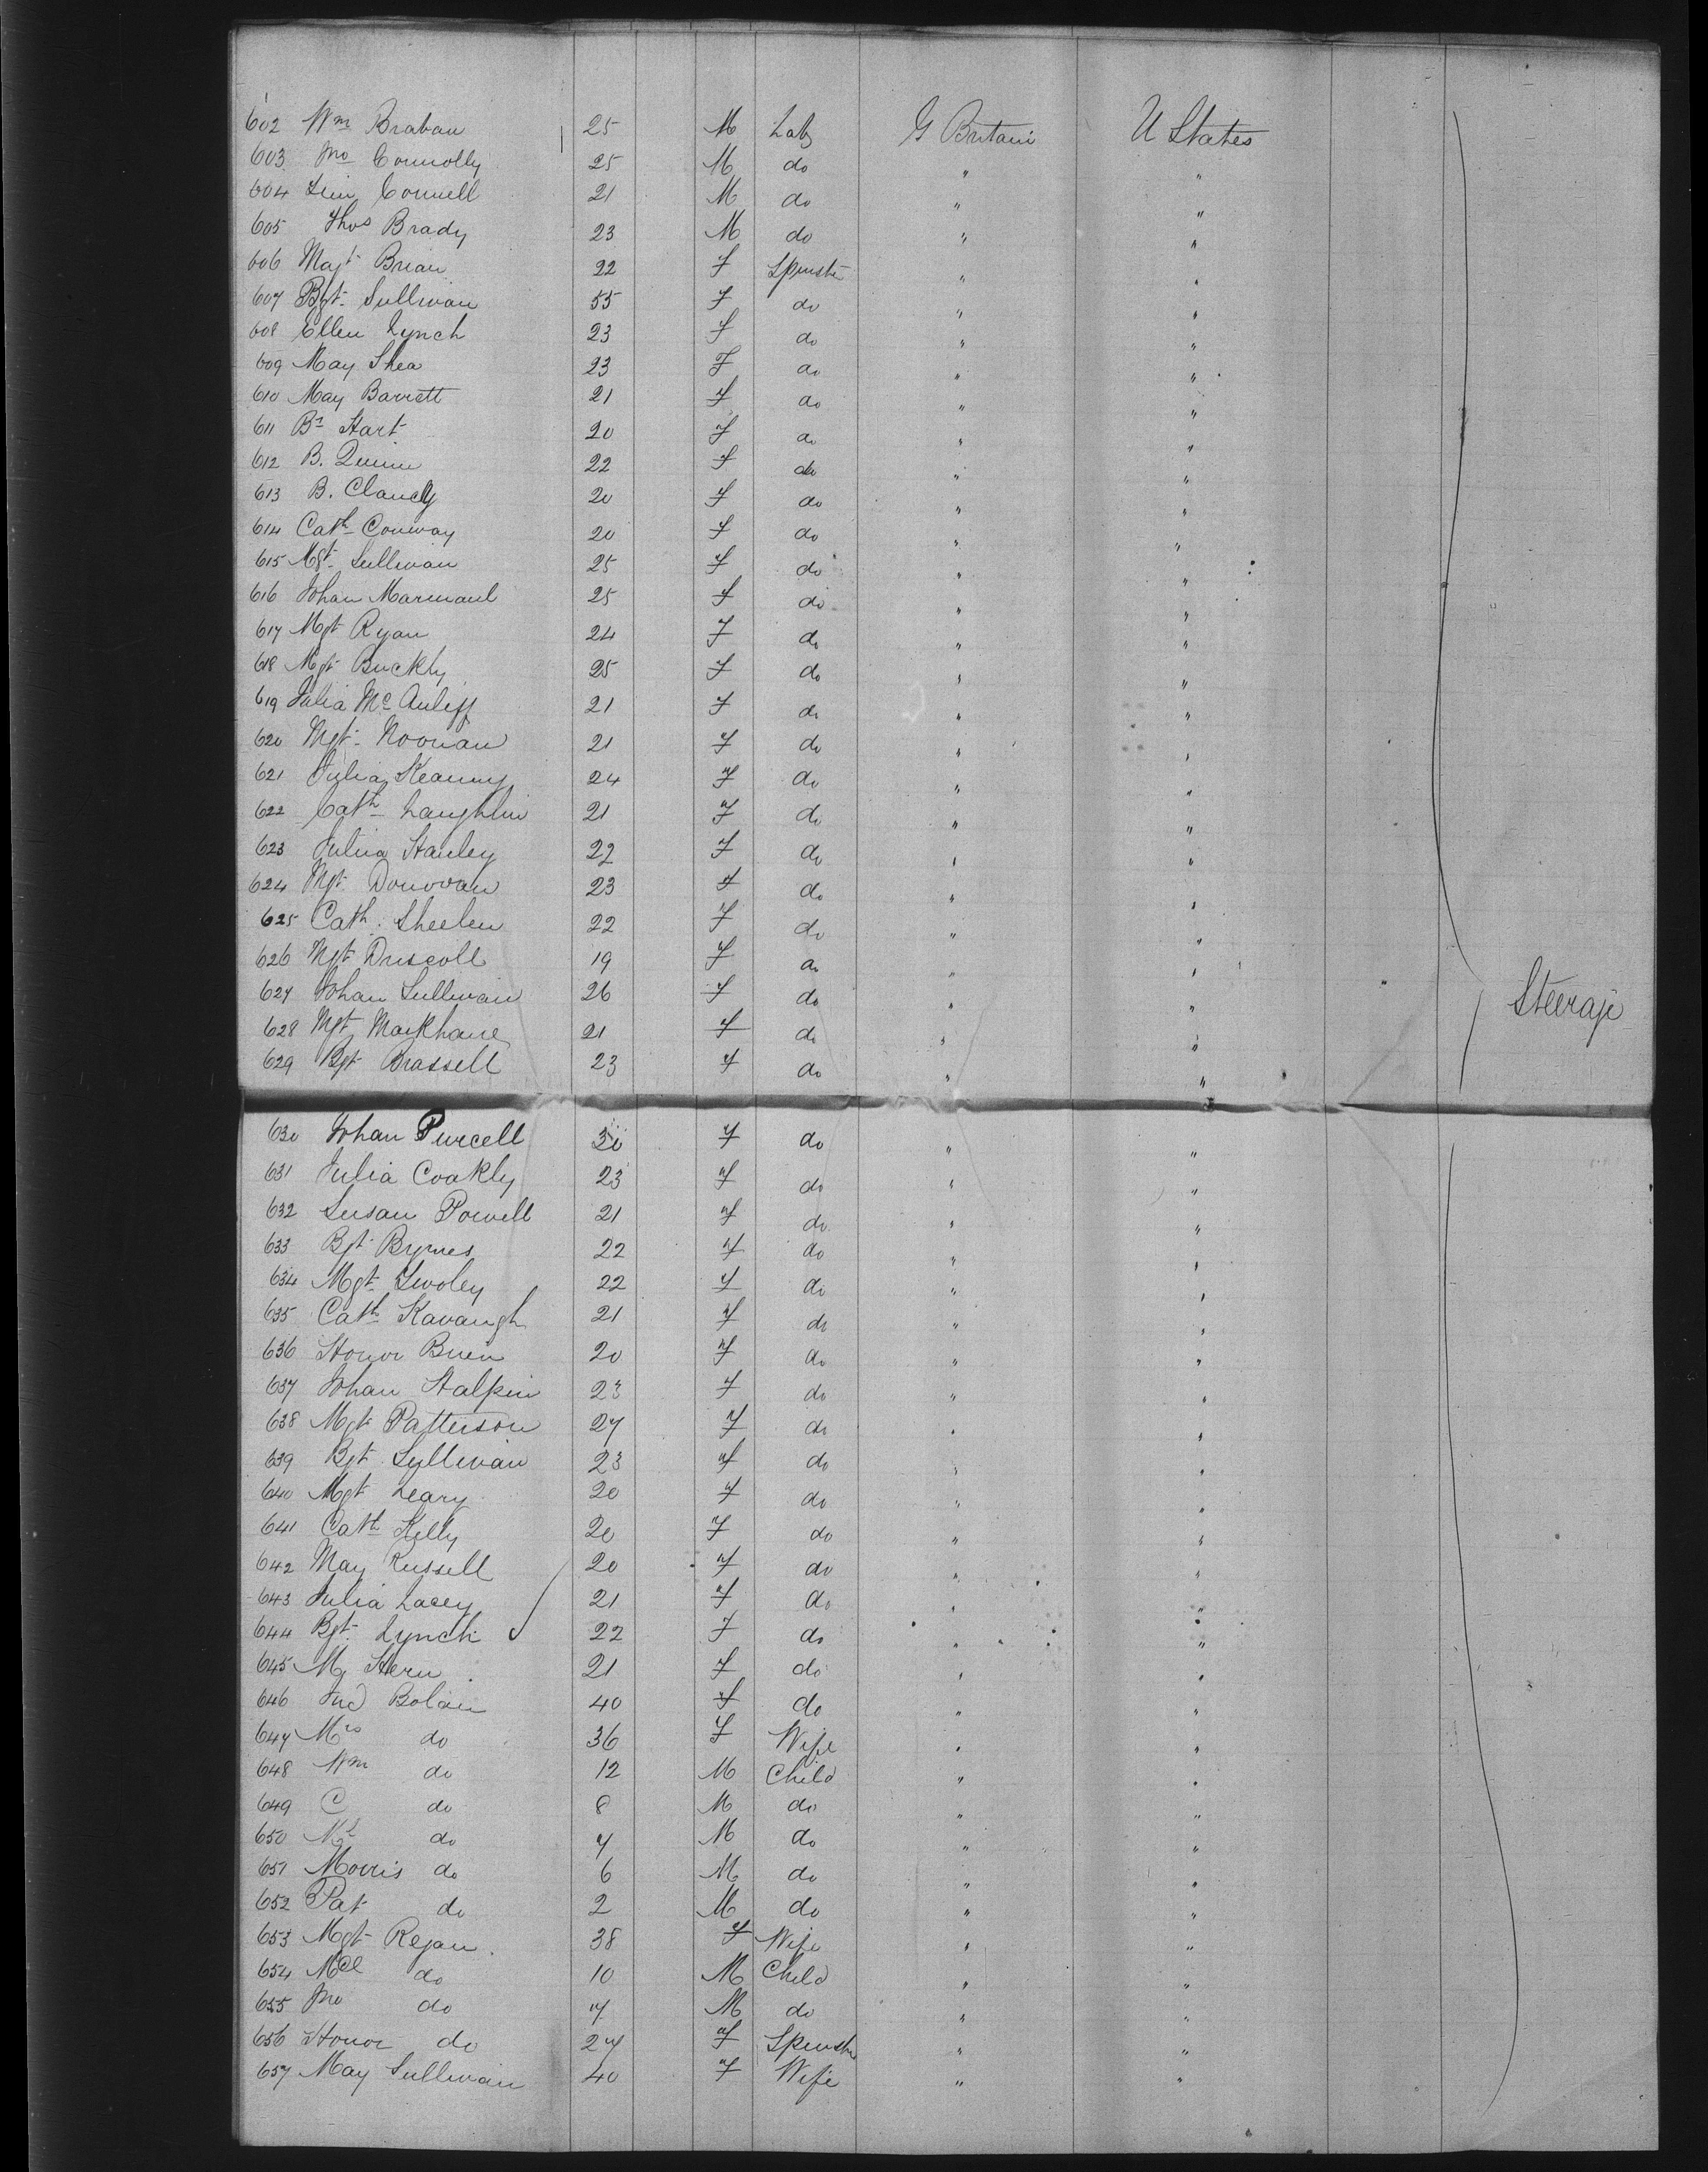 602 Wm Braban 25 M Lab G Britain U States
603 Jno Connolly 25 M do " "
604 Tim Connell 21 M do " "
605 Thos Brady 23 M do " "
606 Magt Brian 22 F Spinstr " "
607 Bgt Sullivan 55 F do " "
608 Ellen Lynch 23 F do " "
609 May Shea 23 F do " "
610 May Barrett 21 F do " "
611 Br Hart 20 F do " "
612 B. Quinn 22 F do " "
613 B. Clancy 20 F do " "
614 Cath Conway 20 F do " "
615 Mgt Sullivan 25 F do " "
616 Johan 25 F do " "
617 Mgt Ryan 24 F do " "
618 Mgt Buckly 25 F do " "
619 Julia McAuliff 21 F do " "
620 Mgt Noonan 21 F do " "
621 Julia Keanny 24 F do " "
622 Cath Laughlin 21 F do " "
623 Julia Hanley 22 F do " "
624 Mgt Donovan 23 F do " "
625 Cath Sheelen 22 F do " "
626 Mgt Driscoll 19 F do " "
627 Johan Sullivan 26 F do " " Steerage
628 Mgt Markhane 21 F do " "
629 Bgt Brassell 23 F do " "
630 Johan Purcell 30 F do " "
631 Julia Coakly 23 F do " "
632 Susan Powell 21 F do " "
633 Bgt Byrnes 22 F do " "
634 Mgt Twoley 22 F do " "
635 Cath Kavangh 21 F do " "
636 Honor Brien 20 F do " "
637 Johan Halpin 23 F do " "
638 Mgt Patterson 27 F do " "
639 Bgt Sullivan 23 F do " "
640 Mgt Leary 20 F do " "
641 Cath Kelly 20 F do " "
642 May Russell 20 F do " "
643 Julia Lacey 21 F do " "
644 Bgt Lynch 22 F do " "
645 My Hern 21 F do " "
646 Bolain 40 F do " "
647 Mrs do 36 F Wife " "
648 Wm do 12 M Child " "
649 C do 8 M do " "
650 Ml do 7 M do " "
651 Morris do 6 M do " "
652 Pat do 2 M do " "
653 Mgt Regan 38 F Wife " "
654 Mcl do 10 M Child " "
655 Jno do 7 M do " "
656 Honor do 27 F Spinstr " "
657 May Sullivan 40 F Wife " "